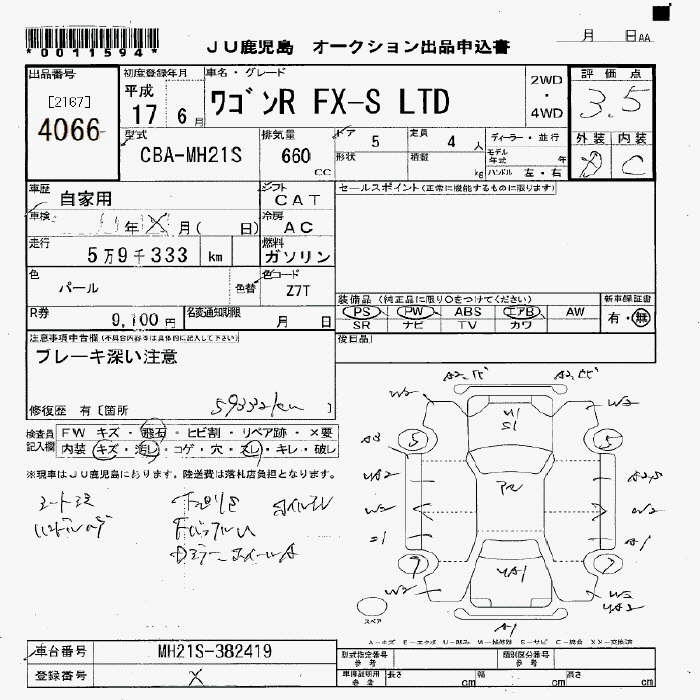 *0011594*
JU鹿児島 オークション出品申込書
月 日AA
出品番号
[2167]
4066
初度登録年月
平成
17 6月
車名・グレード
ワゴンR FX-S LTD
2WD
・
4WD
評価点
3.5
外装 内装
D C
型式
CBA-MH21S
排気量
660
cc
ドア 5
定員 4 人
ディーラー・並行
形状
積載 kg
モデル年式 年
ハンドル 左・右
車歴
自家用
シフト
CAT
セールスポイント(正常に機能するものに限ります)
車検
年 月( 日)
冷房
AC
走行
5万9千333 km
燃料
ガソリン
色
パール
色替
色コード
Z7T
装備品(純正品に限り○をつけてください)
新車保証書
PS PW ABS エアB AW
SR ナビ TV カワ
有・無
R券
9,100円
名変通知期限
月 日
後日品
注意事項申告欄(不具合内容等は具体的に記入して下さい)
ブレーキ深い注意
修復歴 有〔箇所 59332km 〕
検査員記入欄
FW キズ・飛石・ヒビ割・リペア跡・×要
内装・キズ・汚レ・コゲ・穴・スレ・キレ・破レ
※現車はJU鹿児島にあります。陸送費は落札店負担となります。
A2.
A2.
W2
W2
U1
S1
5
5
A3
UA2
A2.5
W2
W2
A1
7
7
UA1
W2
UA2
A1
スペア
A-キズ
車台番号
MH21S-382419
登録番号
X
型式指定番号
参考
類別区分番号
参考
車検証明用
参考
長さ cm
幅 cm
高さ cm